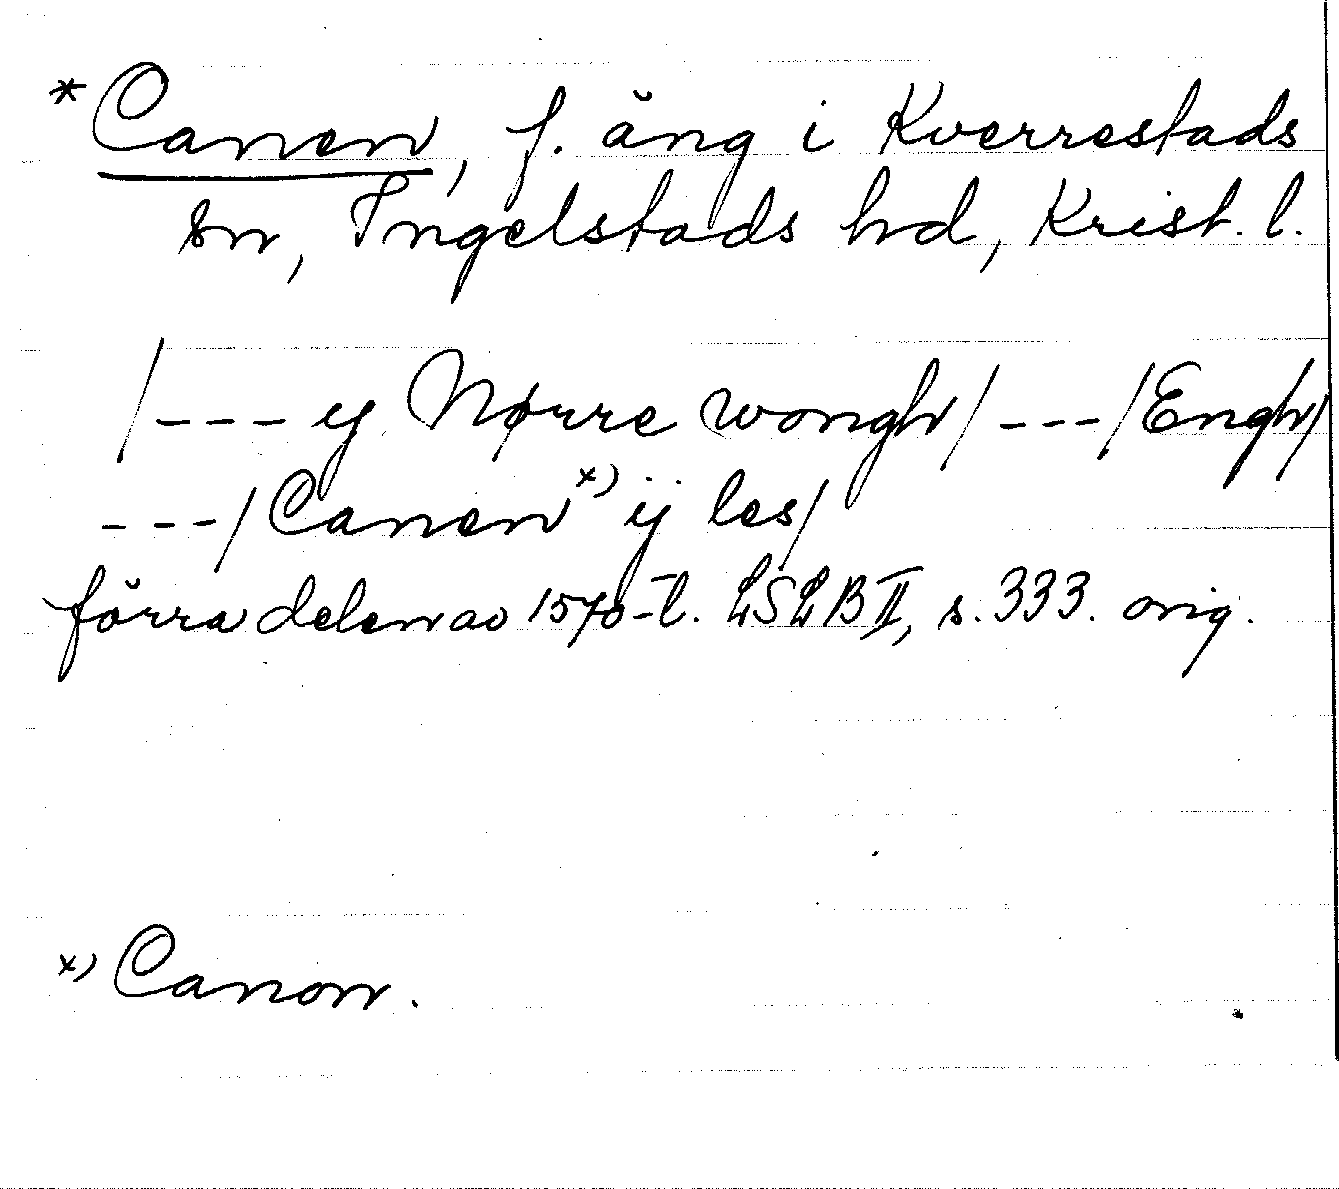 *Canen, f. äng i Kverrestads
sn, Ingelstads hd, Krist. l.
/--- y Nørre wongh/ ---/Engh/
---/Canen x) ij les/
förra delen av 1570-t. LSLB II, s. 333. orig.
x) Canon.